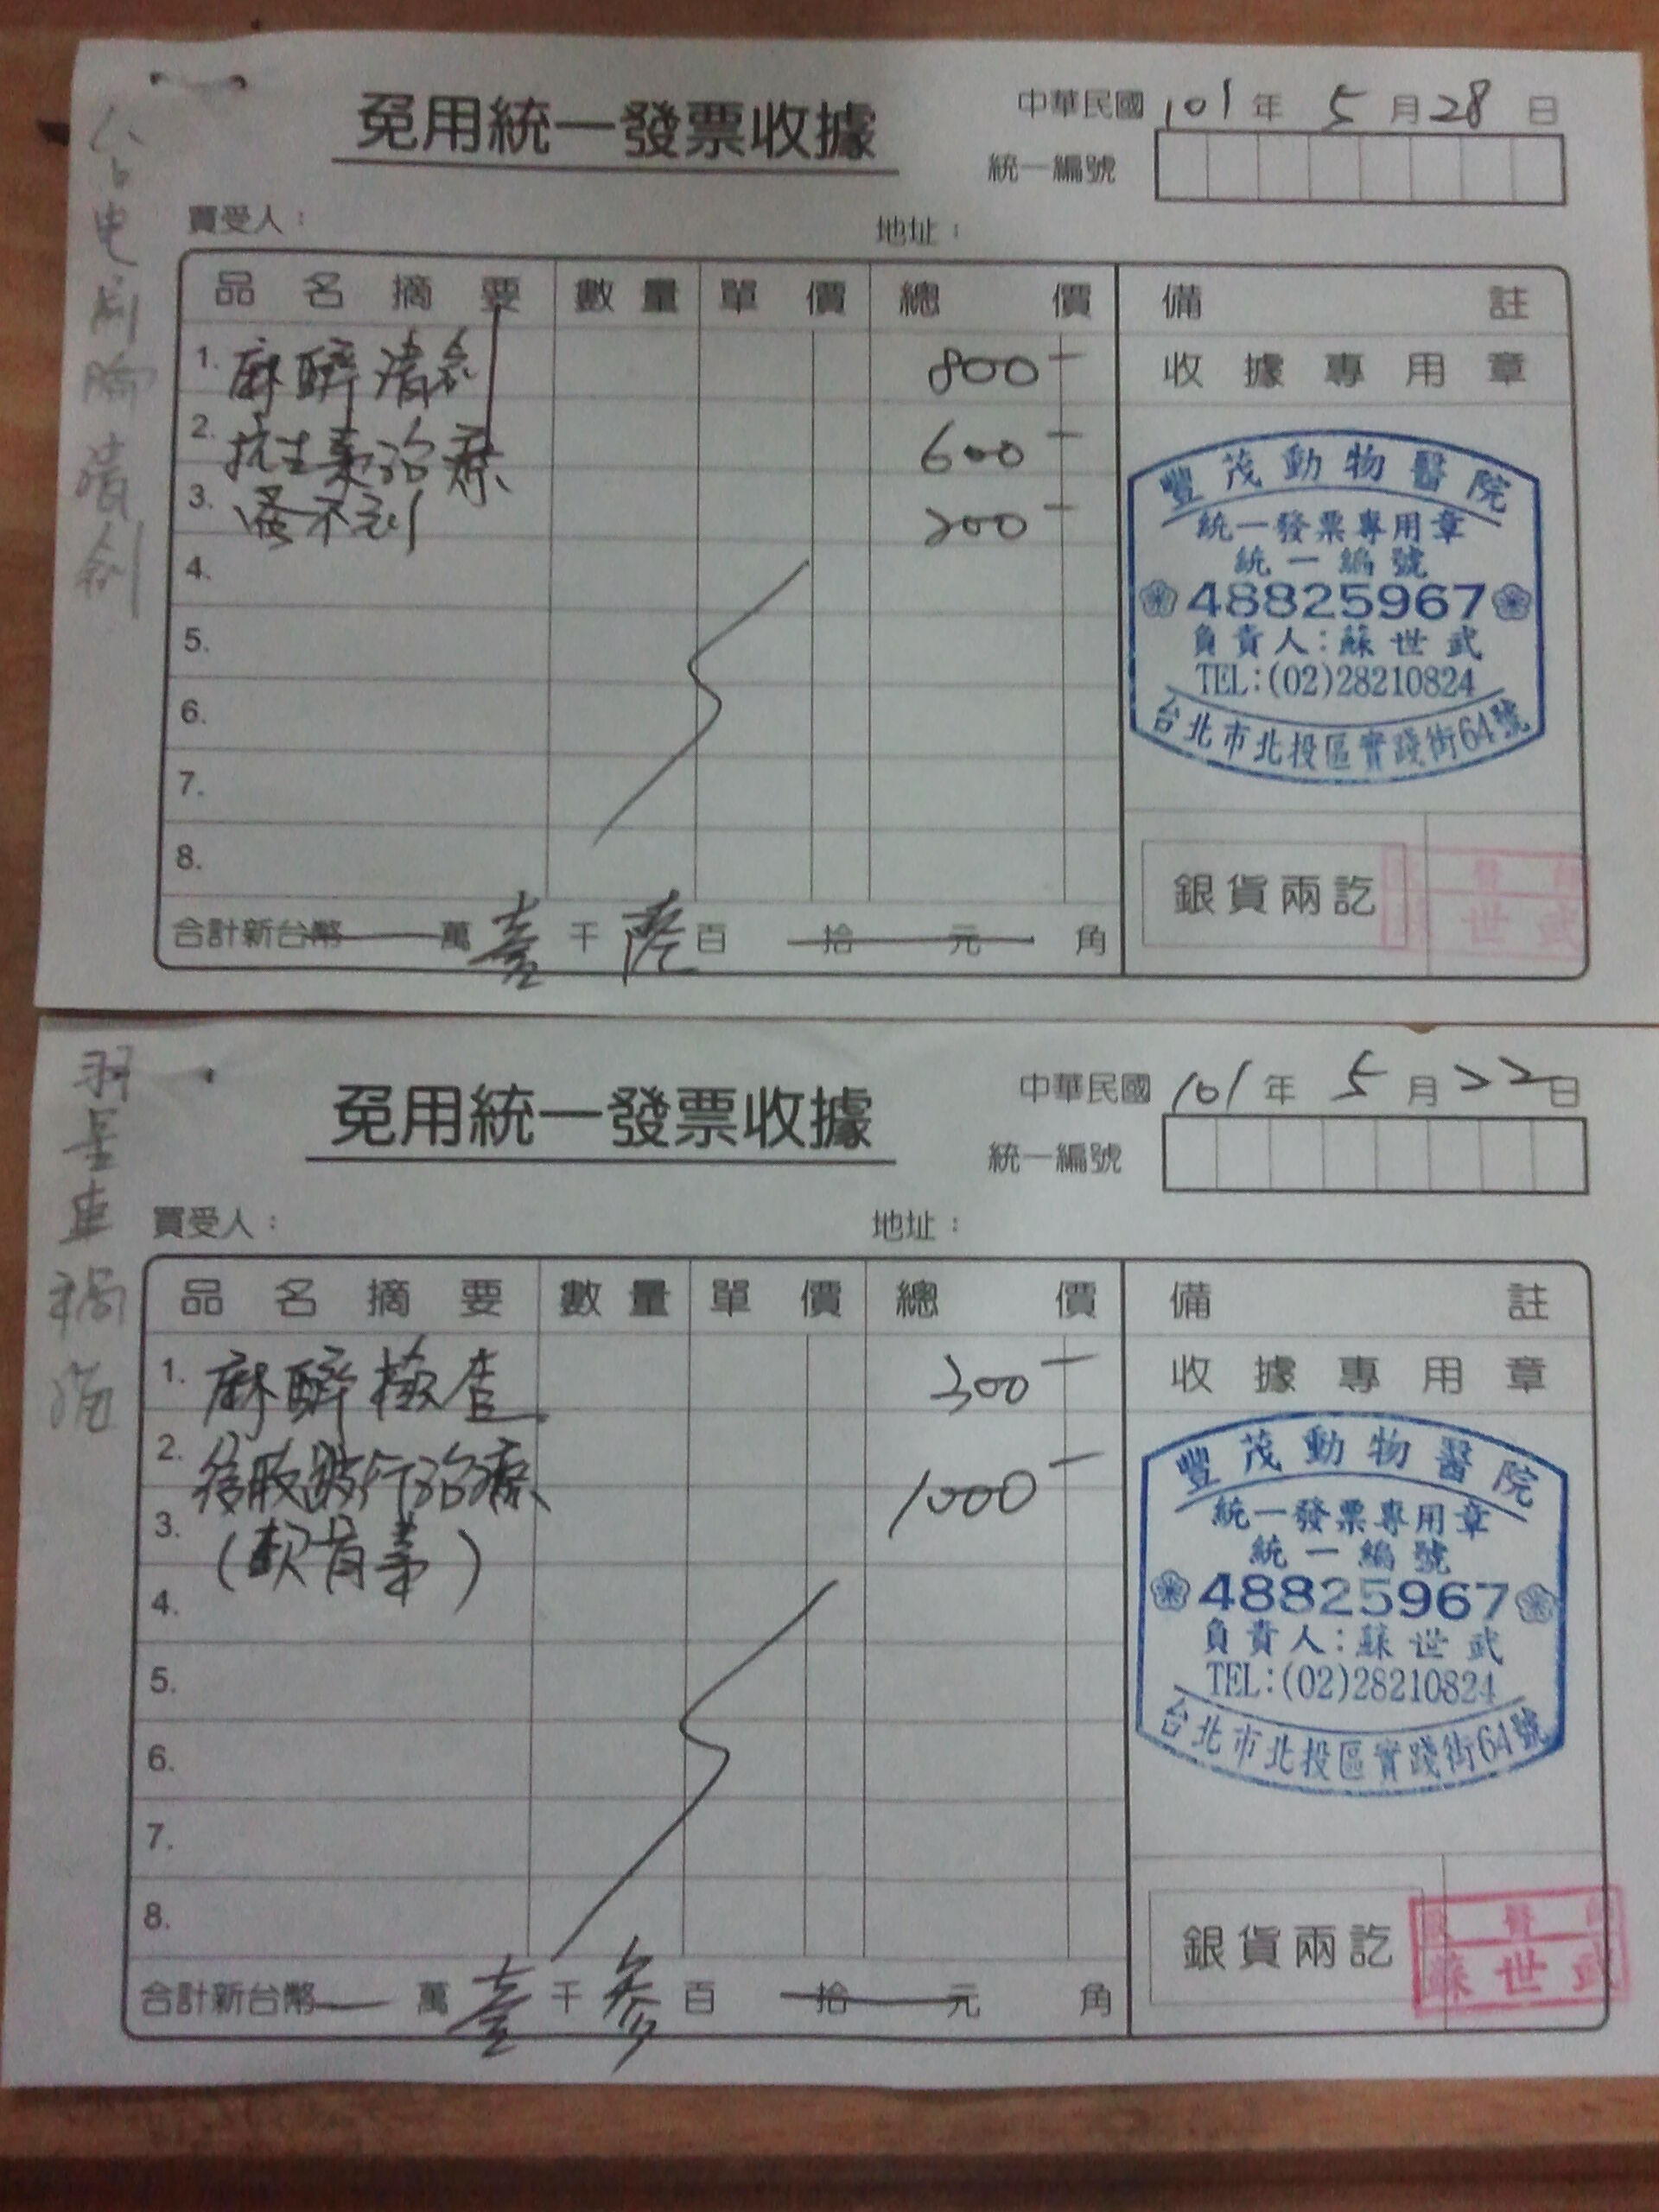 免用統一發票收據
中華民國 101 年 5 月 28 日
統一編號
買受人：
地址：
品名摘要 數量 單價 總價 備註
1. 麻醉清創 800
收據專用章
2. 抗生素治療 600
3. 蚤不到 200
4.
5.
6.
7.
8.
豐茂動物醫院
統一發票專用章
統一編號
48825967
負責人：蘇世武
TEL:(02)28210824
台北市北投區實踐街64號
銀貨兩訖
世武
合計新台幣 萬 壹 千 陸 百 拾 元 角
車禍
免用統一發票收據
中華民國 101 年 5 月 22 日
統一編號
買受人：
地址：
品名摘要 數量 單價 總價 備註
1. 麻醉檢查 300
收據專用章
2. 後肢跛行治療 1000
3. (軟骨素)
4.
5.
6.
7.
8.
豐茂動物醫院
統一發票專用章
統一編號
48825967
負責人：蘇世武
TEL:(02)28210824
台北市北投區實踐街64號
銀貨兩訖
蘇世武
合計新台幣 萬 壹 千 參 百 拾 元 角